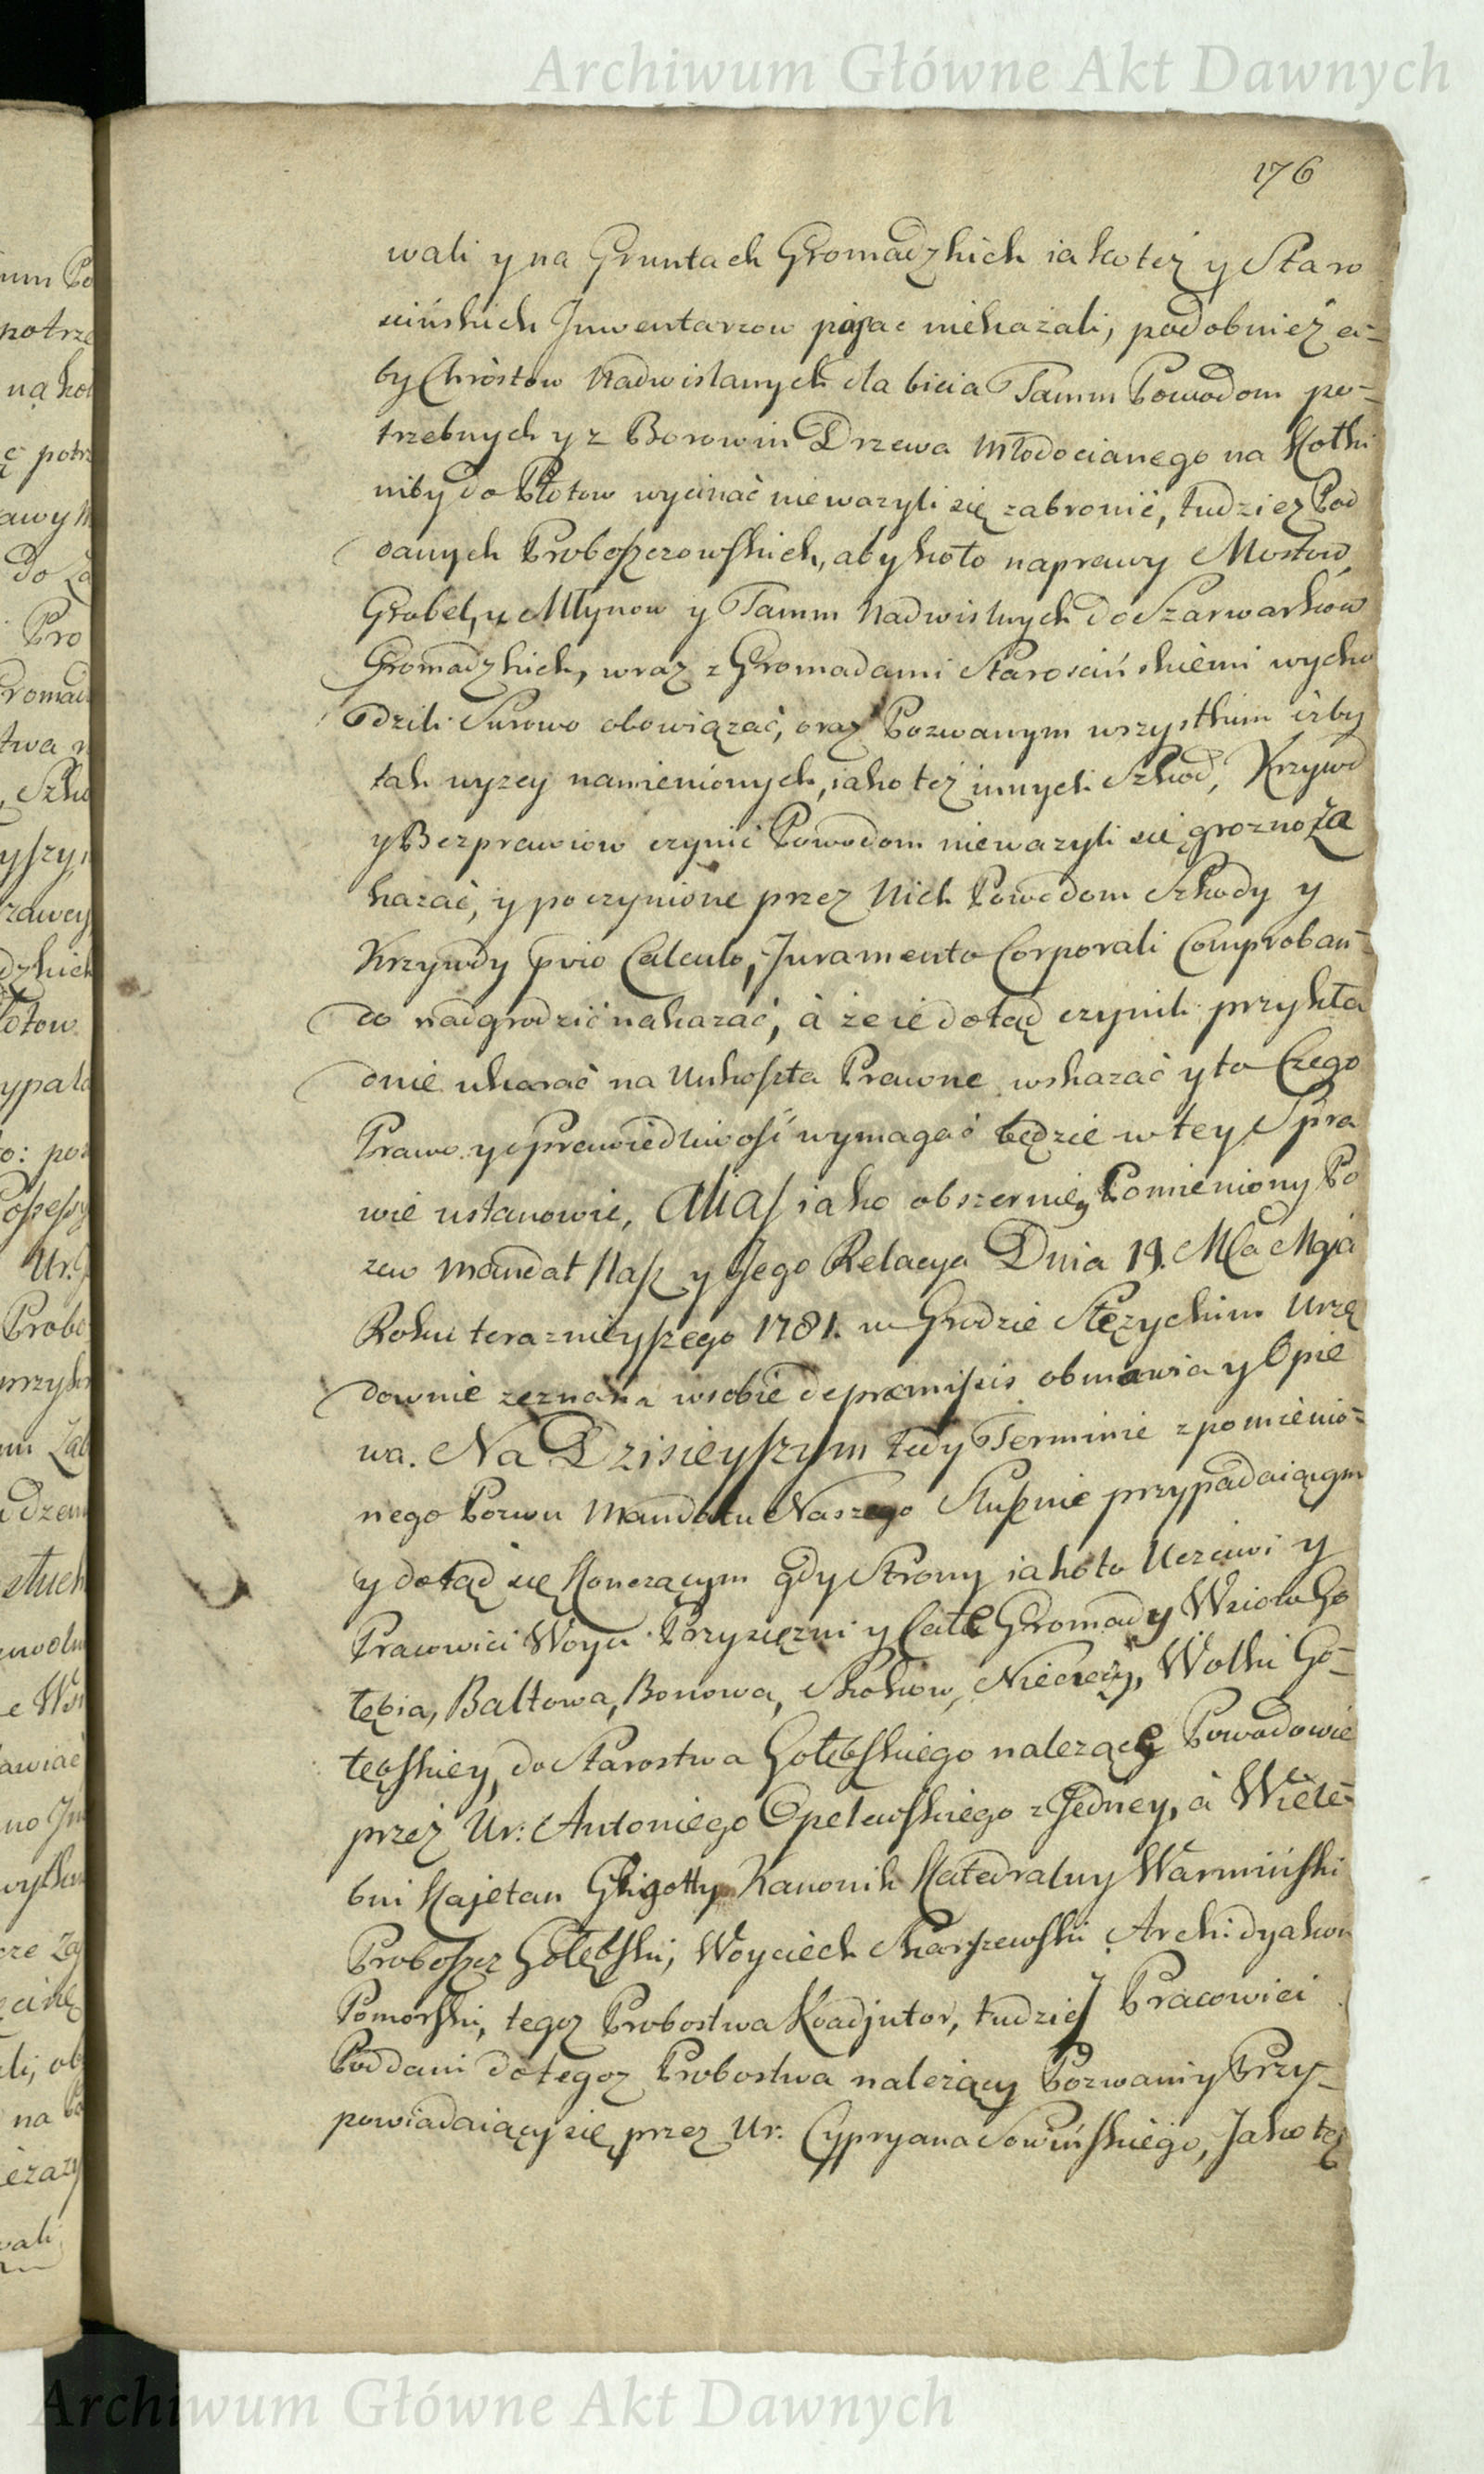 Archiwum Główne Akt Dawnych
176
wali y na Gruntach Gromadzkich iako też y Staro
scińskich Inwentarzow pasać niekazali, podobnież a-
by Chróstow Nadwislanych dla bicia Tamm Powodom po-
trzebnych y z Borowin Drzewa Młodocianego na Kołki
niby do Płotow wycinać niewazyli się zabronić, tudziez Pod
danych Proboszczowskich, aby koło naprawy Mostow,
Grobel, y Młynow y Tamm Nadwislnych do Szarwarkow
Gromadzkich, wraz z Gromadami Starościńskiemi wycho
dzili Surowo obowiązać, oraz Pozwanym wszystkim iżby
tak wyzey namienionych, iako też innych Szkod, Krzywd
y Bezprawiow czynić Powodom niewazyli się grozno Za
kazać, y poczynione przez Nich Powodom Szkody y
Krzywdy pvio Calculo, Juramento Corporali Comproban-
do nadgrodzić nakazać, à że ie dotąd czynili przykła
dnie ukarać na Unkoszta Prawne wskazać y to Czego
Prawo y Sprawiedliwość wymagać będzie w tey Spra
wie ustanowić, Alias iako obszerniey Pomieniony Po
zew Mandat Nasz y Jego Relacya Dnia 19. Mca Maja
Roku teraznieyszego 1781. w Grodzie Stęzyckim Urzę
downie zeznana w sobie de præmissis obmawia y Opie
wa. Na Dzisieyszym tedy Terminie z pomienio-
nego Pozwu Mandatu Naszego Słusznie przypadaiącym
y dotąd się Konczącym gdy Strony iako to Uczciwi y
Pracowici Woyci Przysięzni y Całe Gromady Wsiow Go
łębia, Bałtowa, Bonowa, Skokow, Niecieczy, Wolki Go-
łębskiey, do Starostwa Gołębskiego nalezące Powodowie
przez Ur: Antoniego Opelewskiego z Jedney, à Wiele-
bni Kajetan Ghigotty Kanonik Katedralny Warmiński
Proboszcz Gołębski, Woyciech Skarszewski Archidyakon
Pomorski, tegoz Probostwa Koadjutor, tudzież Pracowici
Poddani do tegoz Probostwa nalezący Pozwani y Przy-
powiadaiący się przez Ur: Cypryana Sowińskiego, Jako też
Archiwum Główne Akt Dawnych